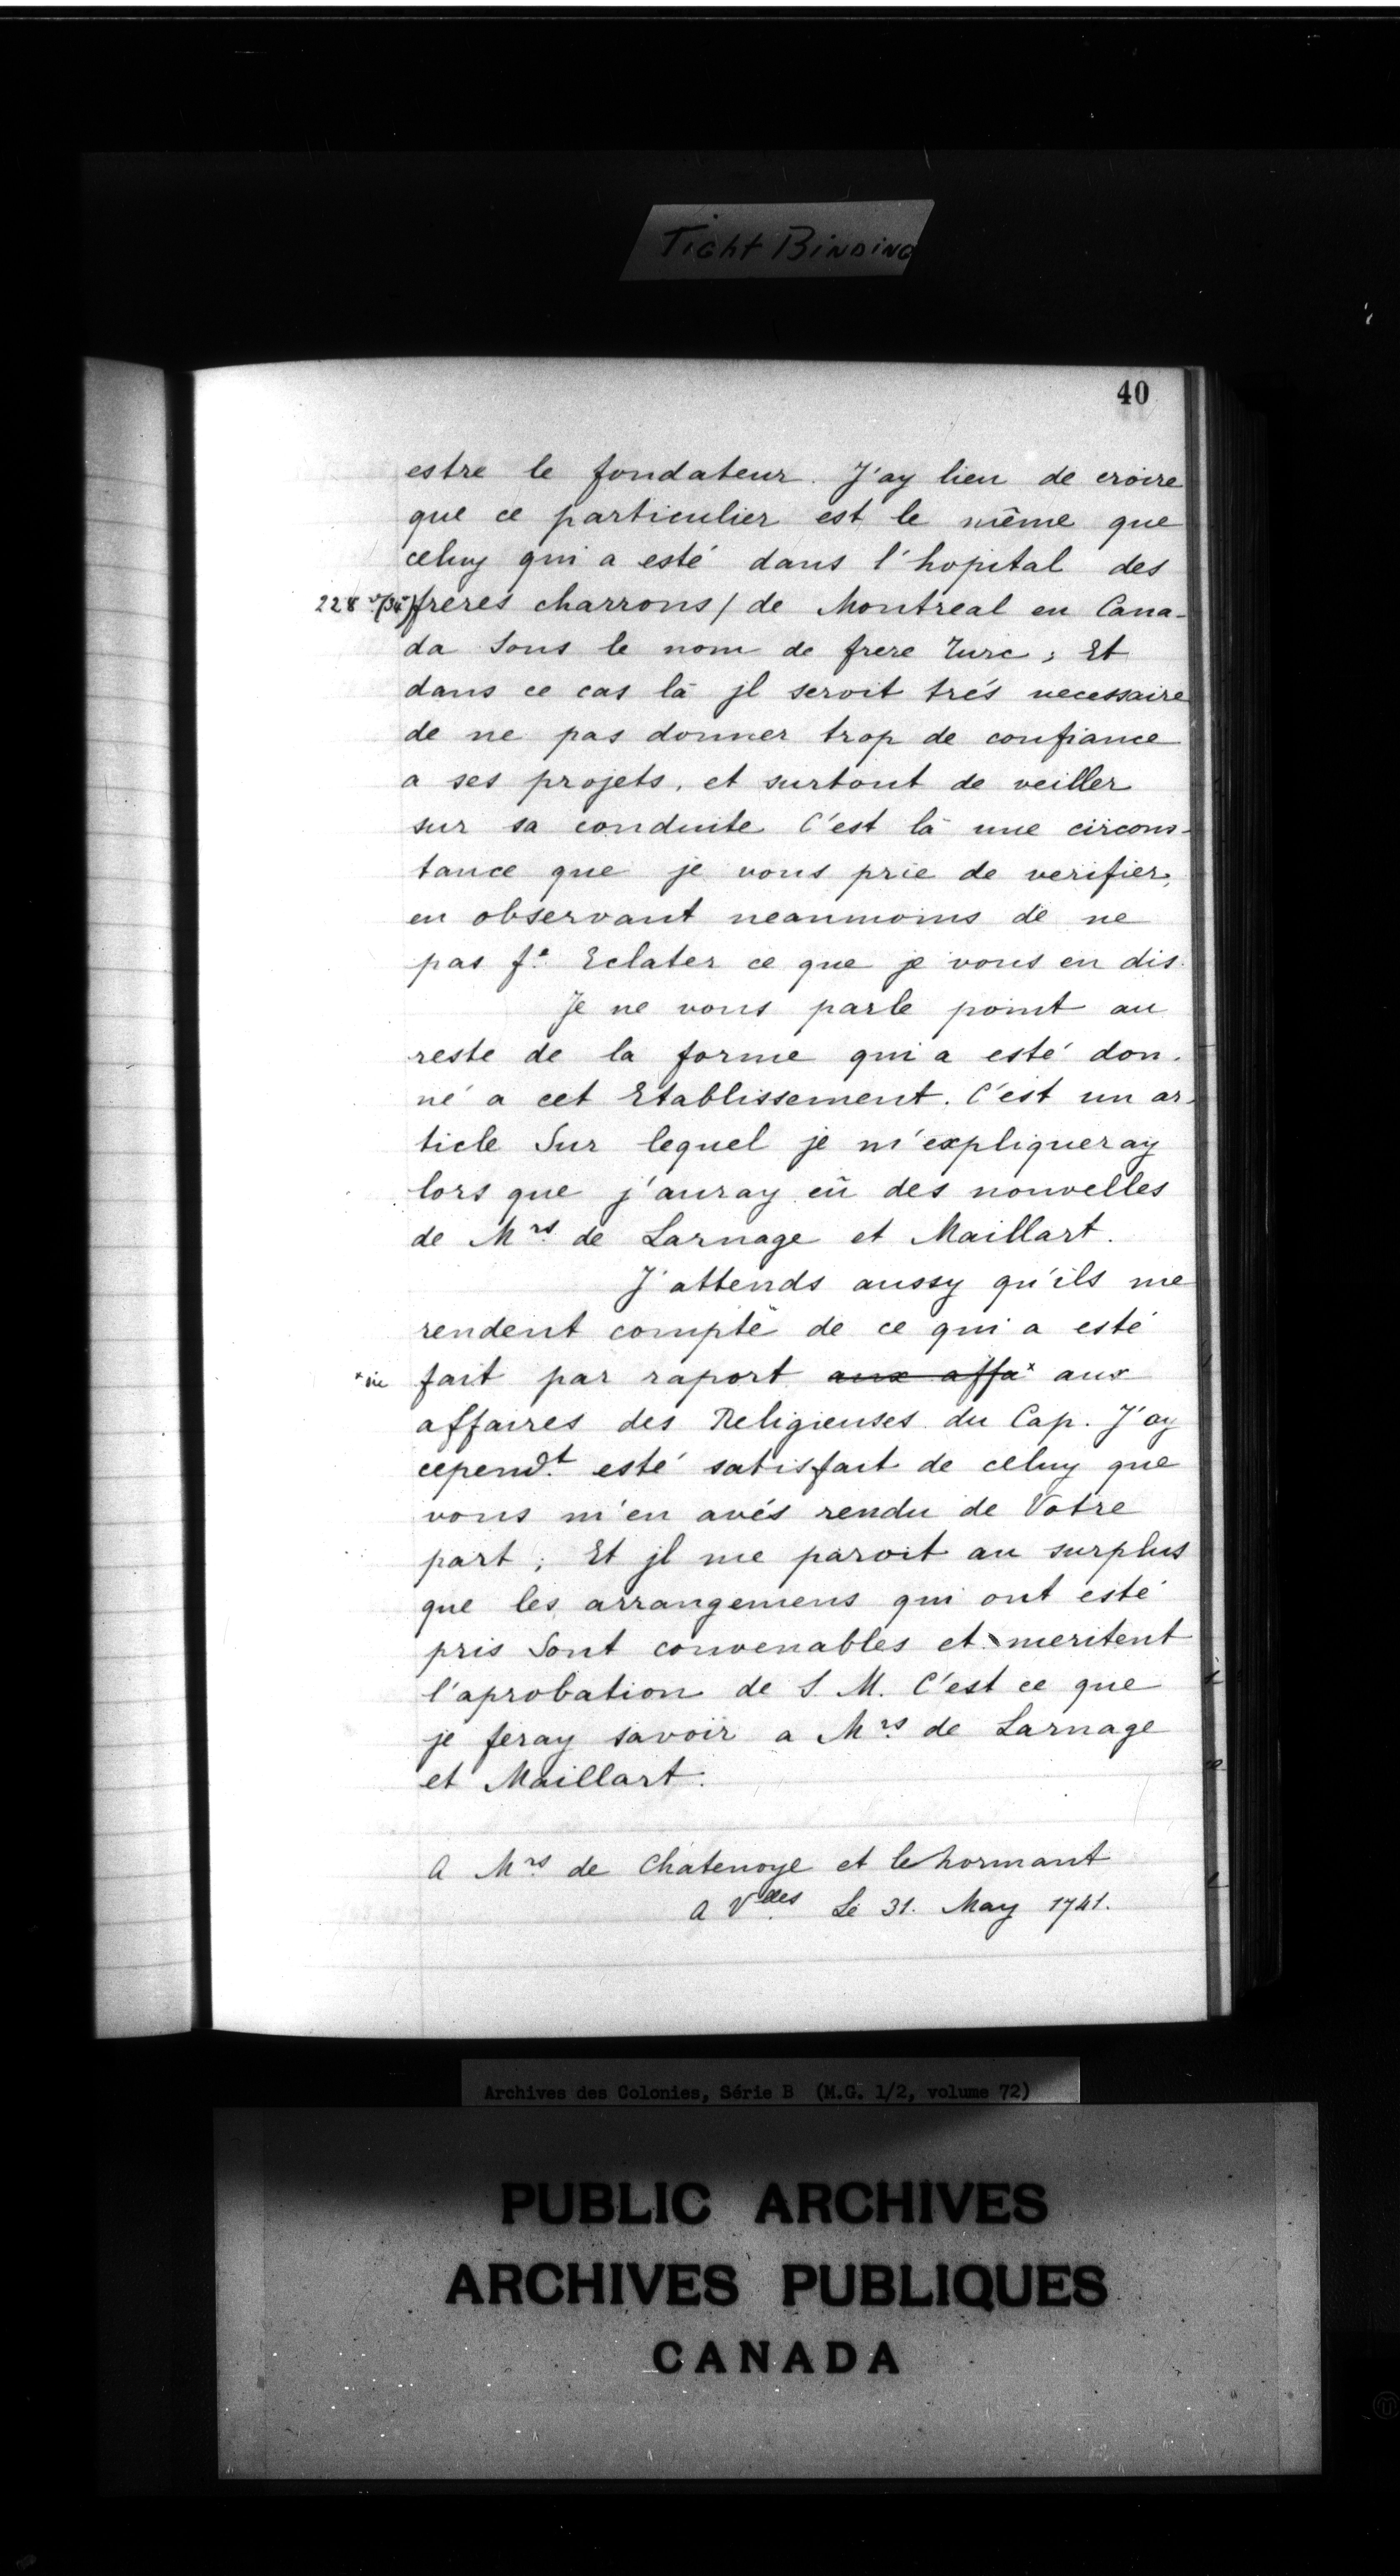 Tight Binding
40
estre le fondateur. J'ay lieu de croire
que ce particulier est le même que
celuy qui a esté dans l'hopital des
228 freres charrons / de Montreal en Cana-
da Sous le nom de frere Turc; Et
dans ce cas là jl seroit trés necessaire
de ne pas donner trop de confiance
a ses projets, et surtout de veiller
sur sa conduite C'est là une circons-
tance que je vous prie de verifier,
en observant neanmoins de ne
pas fe. Eclater ce que je vous en dis.
Je ne vous parle point au
reste de la forme qui a esté don-
né a cet Etablissement. C'est un ar-
ticle Sur lequel je m'expliqueray
lors que j'auray eü des nouvelles
de Mrs. de Larnage et Maillart.
J'attends aussy qu'ils me
rendent compte de ce qui a esté
*sic fait par raport aux affa* aux
affaires des Religieuses du Cap. J'ay
cependt. esté satisfait de celuy que
vous m'en avés rendu de Votre
part; Et jl me paroit au surplus
que les arrangemens qui ont esté
pris Sont convenables et meritent
l'aprobation de S. M. C'est ce que
je feray savoir a Mrs. de Larnage
et Maillart.
A Mrs. de Chatenoye et le hormant
A Vlles. Le 31. May 1741.
Archives des Colonies, Série B (M.G. 1/2, volume 72)
PUBLIC ARCHIVES
ARCHIVES PUBLIQUES
CANADA